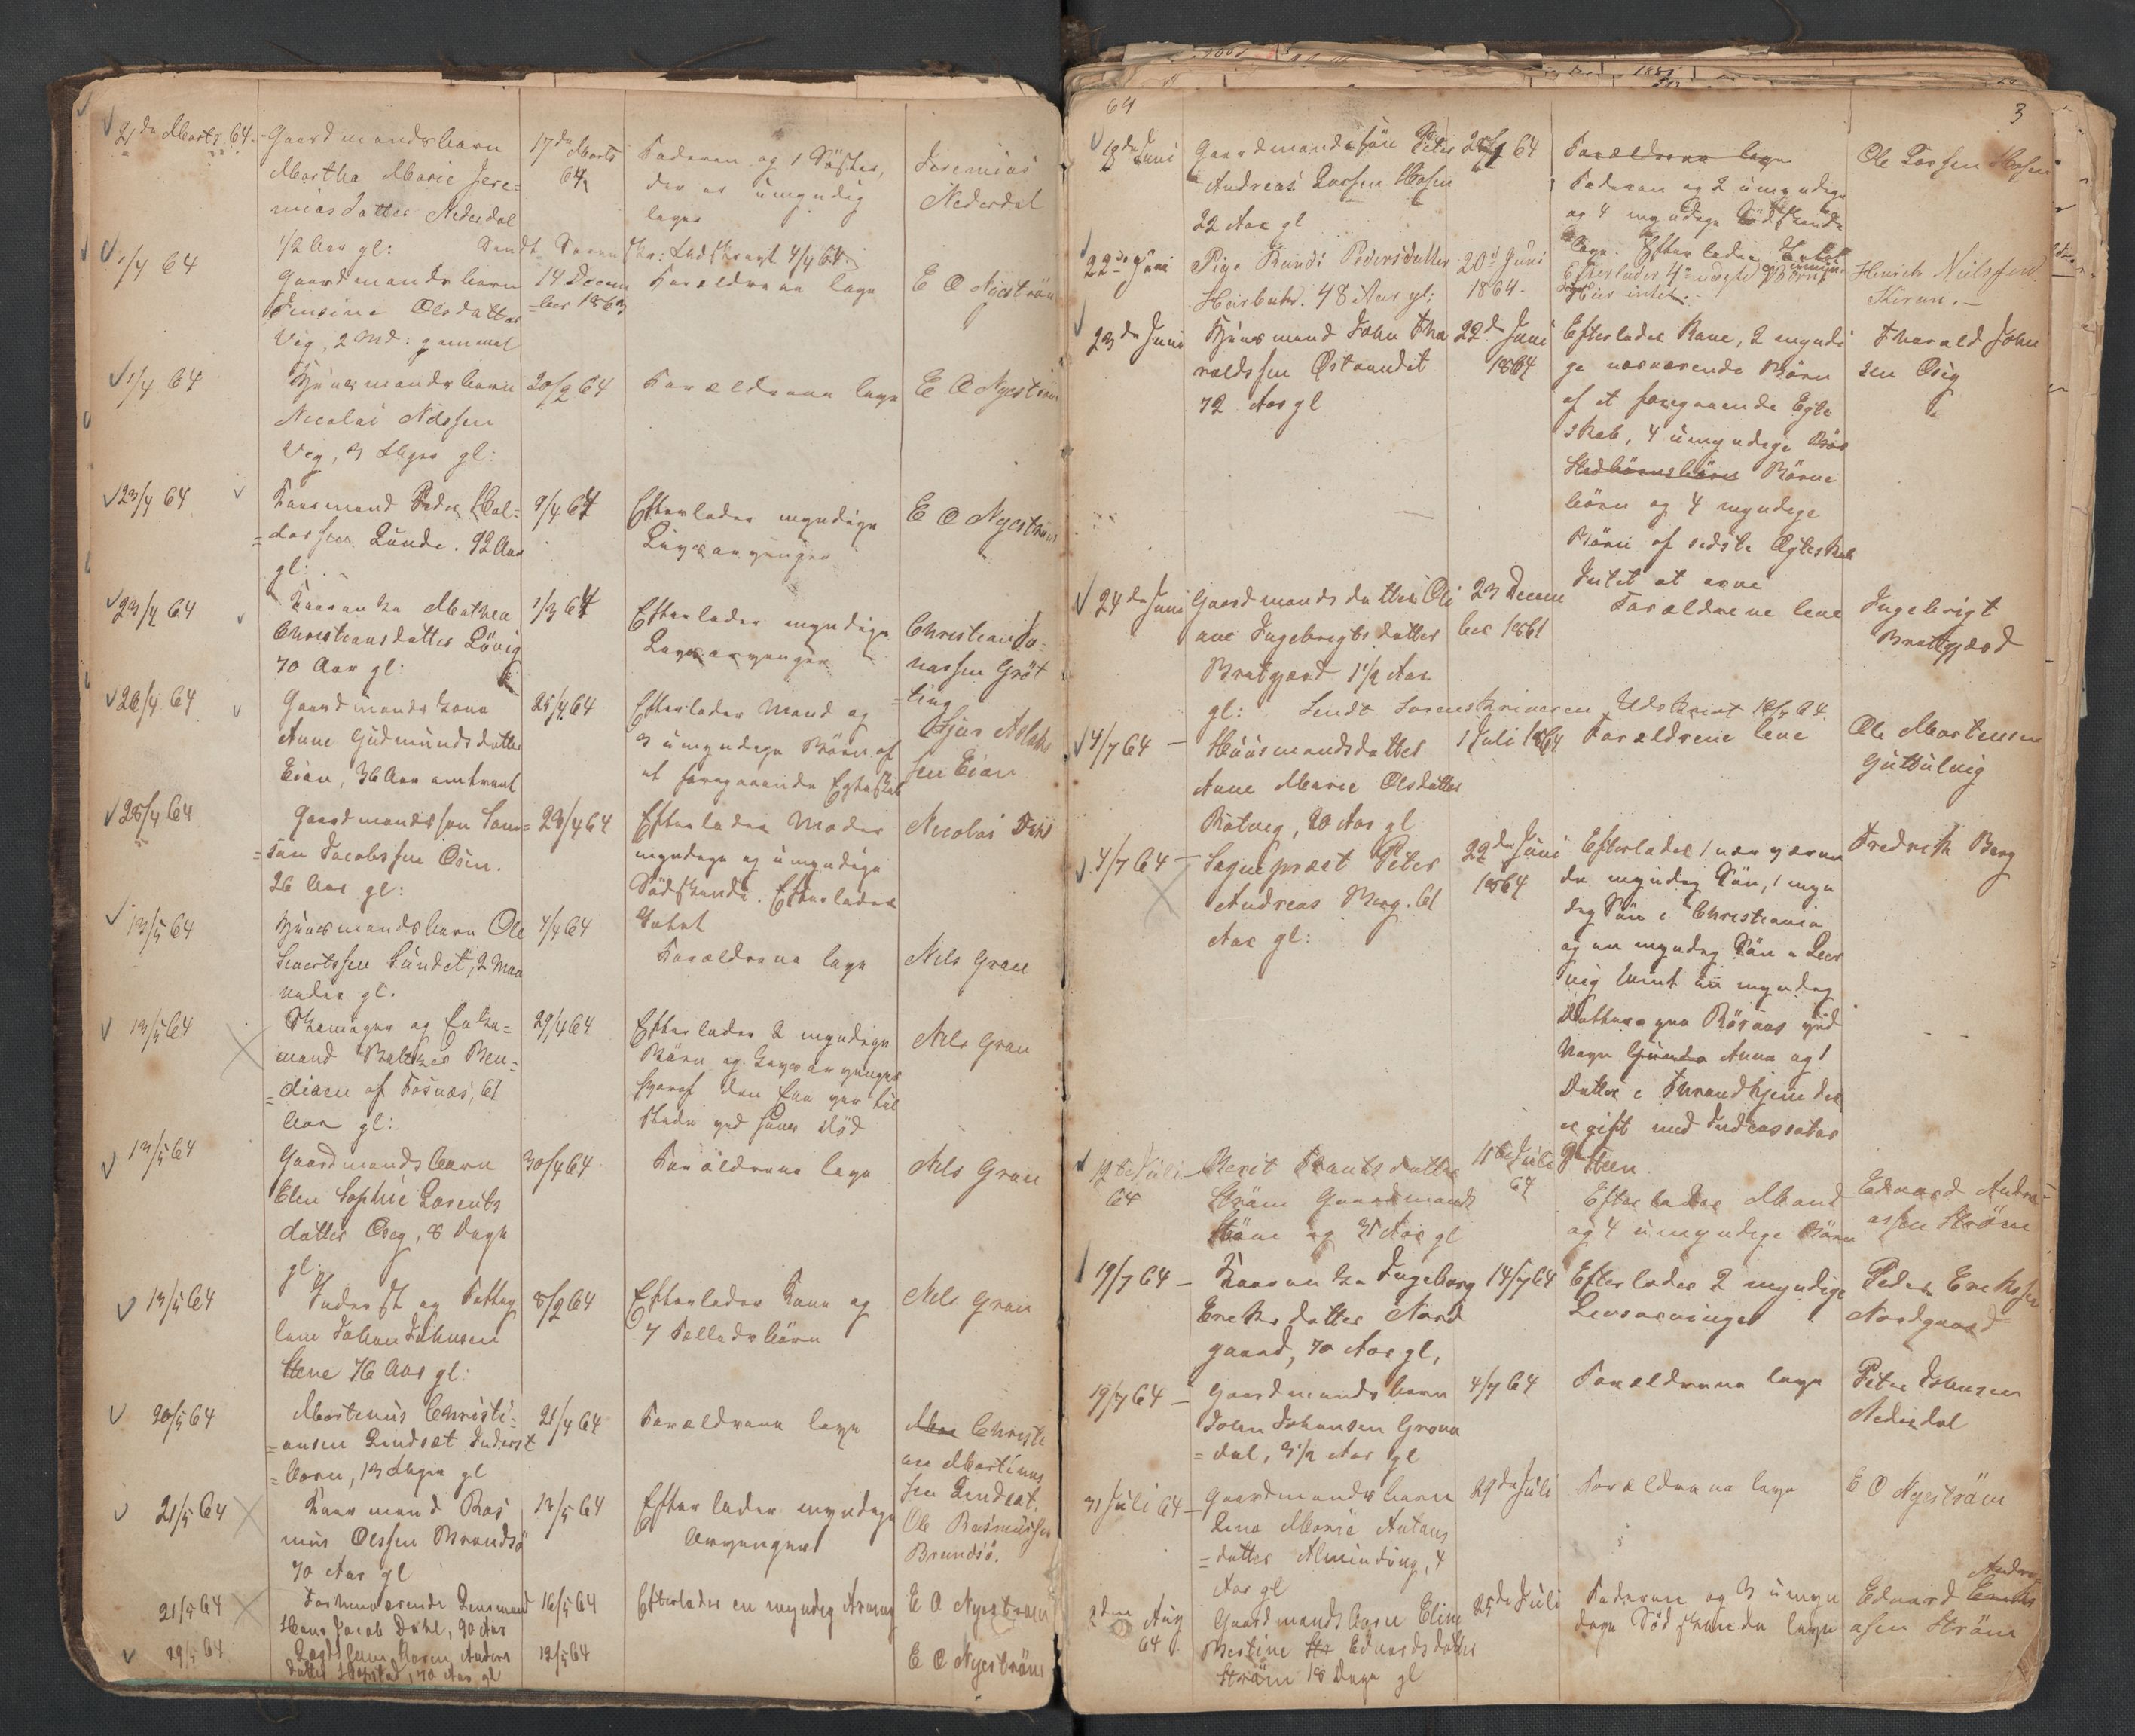 21de Marts 64.
Gaardmandsbarn
Martha Marie Jere=
miasdatter Nederdal
1/2 Aar gl:
17de Marts
64
Faderen og 1 Söster,
der er umyndig
lever
Jeremias
Nederdal
Sendt Soren Skr: Udskrivt 4/4 64.
1/4 64
Gaardmandsbarn
Jensine Olsdatter
Vig, 2 Md: gammel
14 Decem
=ber 1863
Forældrene leve
E O Nyeström
1/4 64
Huusmandsbarn
Nicolai Nilssen
Vig, 3 Uger gl:
20/2 64
Forældrene leve
E O Nyeström
23/4 64
Kaarmand Peder Hal=
=dorssen Lunde. 92 Aar
gl:
9/4 64
Efterlader myndige
Livsarvinger
E O Nyeström
23/4 64
Kaarenke Mathea
Christiansdatter Lövig
70 Aar gl:
1/3 64
Efterlader myndige
Livsarvinger
Christian Jo=
nassen Gröt
=ting
26/4 64
Gaardmandskone
Anne Gudmundsdatter
Eian, 36 Aar omtrent
25/4 64
Efterlader Mand og
3 umyndige Börn af
et foregaaende Egteskab
Sjur Aslak
sen Eian
28/4 64
Gaardmandssøn Sam=
=son Jacobssen Osen.
26 Aar gl:
23/4 64
Efterlader Moder
myndige og umyndige
Södskende. Efterlader
Intet
Nicolai Dahl
13/5 64
Huusmandsbarn Ole
Sivertssen Sundet, 2 Maa
neder gl.
4/4 64
Forældrene leve
Nels Gran
13/5 64
Skomager og Enke=
mand Baltzer Ben=
=dixen af Fosnæs, 61
Aar gl:
29/4 64
Efterlader 2 myndige
Börn og Livsarvinger
hvoraf den Ene var til
stede ved hans död
Nels Gran
13/5 64
Gaardmandsbarn
Elen Sophie Lorents
datter Oseg, 8 Dage
gl:
30/4 64
Forældrene leve
Nels Gran
13/5 64
Inderst og Fattig
lem Johan Johnsen
Stene 76 Aar gl:
8/2 64
Efterlader Kone og
7 Fælledsbörn
Nels Gran
20/5 64
Martinus Christi=
=ansen Lindset Inderst
=barn, 13 Uger gl
21/4 64
Forældrene leve
Christi
an Martinus
sen Lindset.
21/5 64
Kaarmand Ras
mus Olssen Brandsö
70 Aar gl
13/5 64
Efterlader myndige
Arvinger
Ole Rasmussen
Brandsö.
21/5 64
Forhenværende Lensmand
Hans Jacob Dahl, 90 Aar
16/5 64
Efterlader en myndig Arving
E O Nyeström
29/5 64
Lægdslem Karen Anders
datter Högstad, 70 Aar gl
12/5 64
E O Nyeström
64
3
18de Juni
Gaardmandssön Peter
Andreas Larsen Mosen
22 Aar gl
64
Forældrene leve
Faderen og 2 umyndige
og 4 myndige Södskende
leve. Efterlader Intet
Ole Larsen Mosen
22de Juni
Pige Randi Pedersdatter
48 Aar gl:
20d Juni
1864.
Efterlader
intet.
Henrik Nielssen
Kirun.-
23de Juni
Huusmand John Tho
raldssen Östvendit
72 Aar gl
22de Juni
1864
Efterlader Kone, 2 myndi
ge nærværende Börn
af et foregaaende Egte
skab, 4 umyndige Bör
Stedbörnsbörn Börne
börn og 4 myndige
Börn af sidste Ægteskab
Intet at arve
Tharald John
sen Oseg
24de Juni
Gaardmandsdatter Oli
ane Ingebrigtsdatter
Bratgjerd 1 1/2 Aar
gl:
23 Decem
ber 1861
Forældrene leve
Ingebrigt
Brattgjerd
Sendt Sorenskriveren Udskrivt 18/7 64.
4/7 64 -
Huusmandsdatter
Anne Marie Olsdatter
Rötveg, 20 Aar gl
1 Juli 1864
Forældrene leve
Ole Mortensen
Guttulvig
4/7 64 -
Sognepræst Peter
Andreas Berg. 61
Aar gl:
22de Juni
1864
Efterlader 1 nærværen
de myndig Sön, 1 myn
dig Sön i Christiania
og en myndig Sön i Leer
vig samt en myndig
Datter paa Röraas ved
Navn Gunda Anna og 1
Datter i Throndhjem der
er gift med Toldcassører
Steen.
Fredrik Berg
12te Juli
64
Berit Frantsdatter
Ström Gaardmands
Kone og 35 Aar gl
11te Juli
64
Efterlader Mand
og 4 umyndige Börn
Edvard Andre=
assen Ström
19/7 64 -
Kaarenke Ingeborg
Ericksdatter Nord
gaard, 70 Aar gl,
14/7 64
Efterlader 2 myndige
Livsarvinger
Peder Erickssen
Nordgaard
19/7 64 -
Gaardmandsbarn
John Johansen Grøna
=dal, 3 1/2 Aar gl
4/7 64
Forældrene leve
Peter Johnsen
Nederdal
31 Juli 64 -
Gaardmandsbarn
Lina Marie Antons
=datter Alminding, 4
Aar gl
29de Juli
Forældrene leve
E O Nyeström
2den Aug
64
Gaardmandsbarn Eline
Bertine Str Edvardsdatter
Ström 18 Dage gl
25de Juli
Faderen og 3 umyn
dige Södskende leve
Andre
Edvard
asen Ström